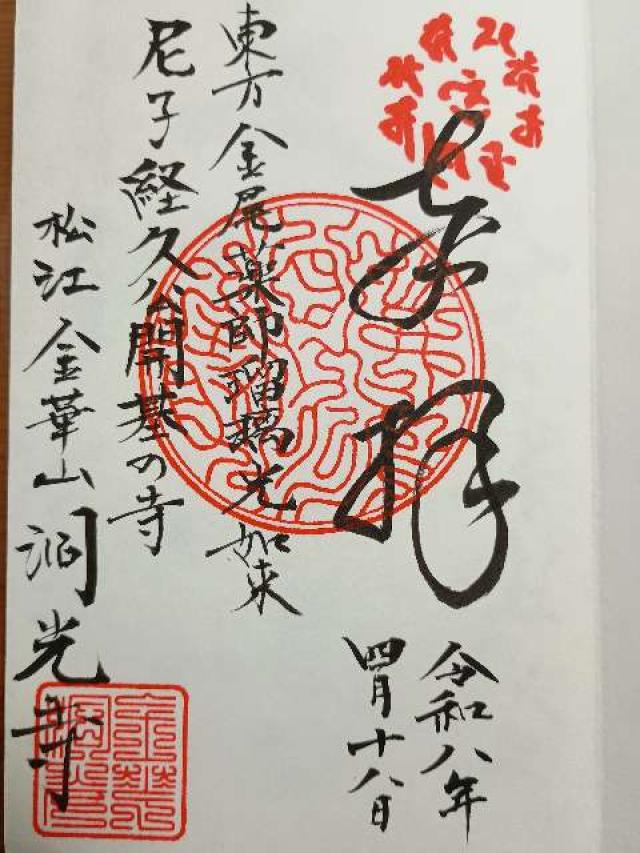 奉拝
令和八年
四月十八日
東方金尾薬師瑠璃光如来
尼子経久公開基の寺
松江金華山洞光寺